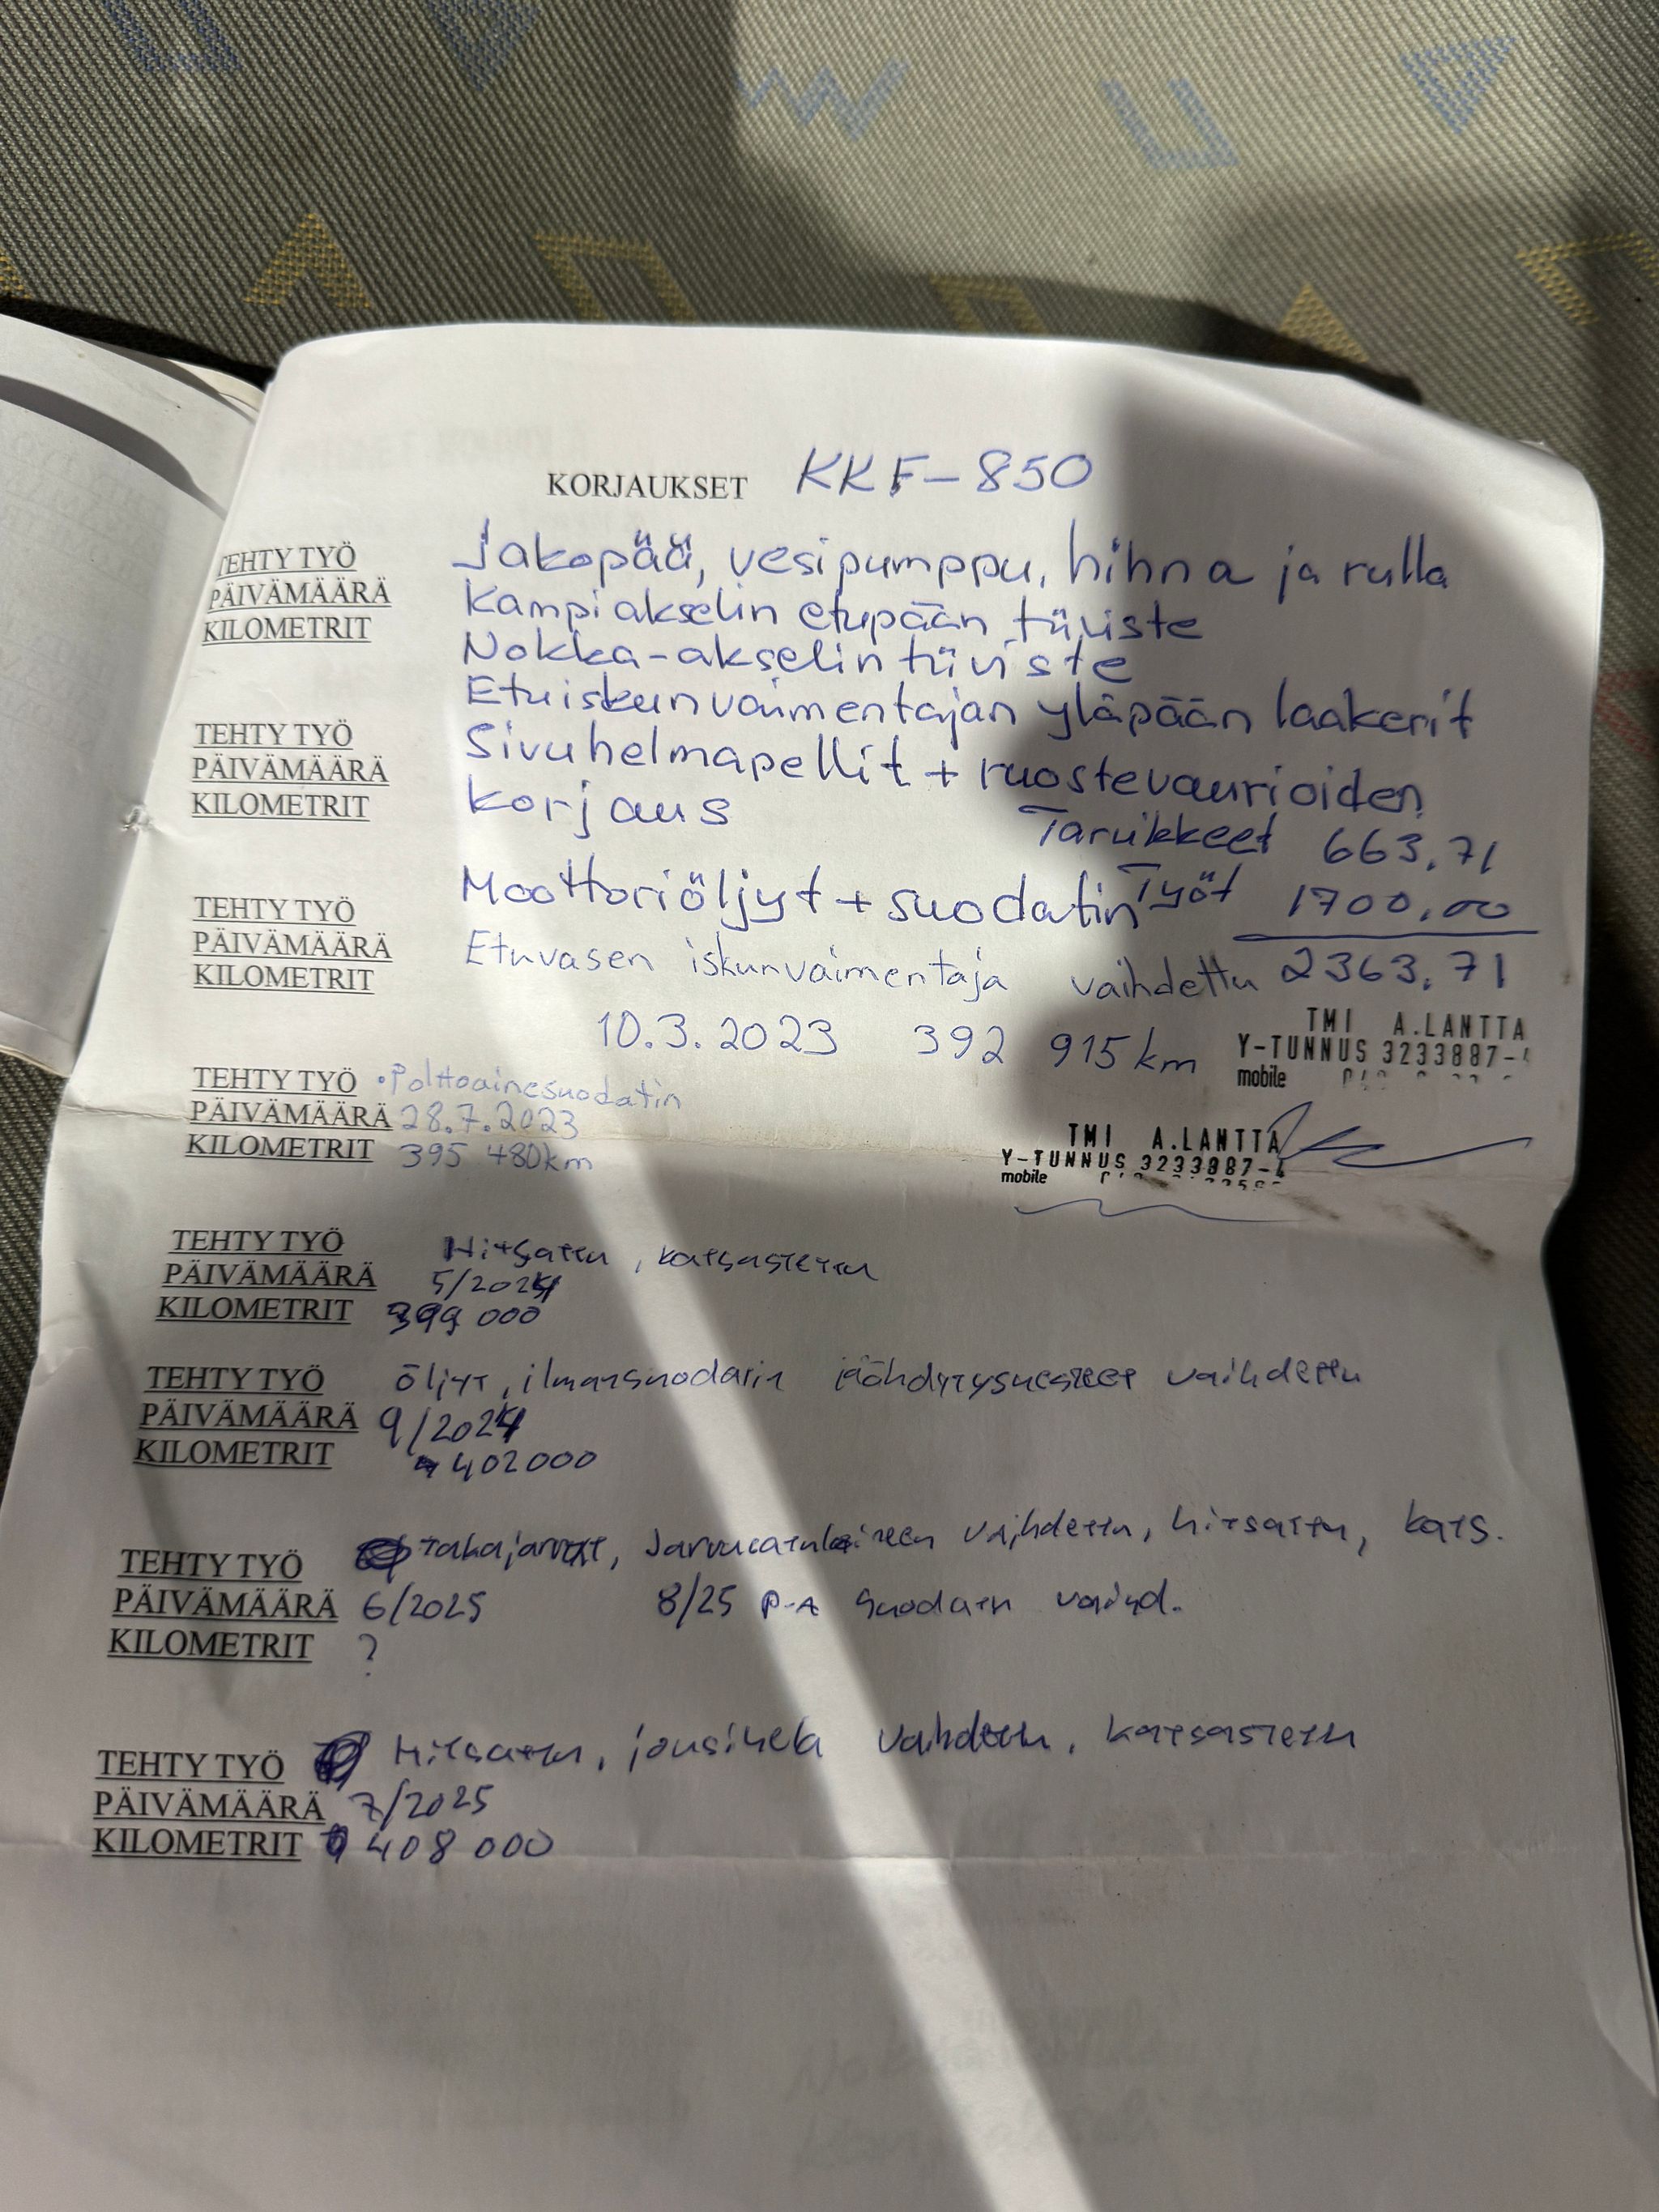 KORJAUKSET KKF-850
TEHTY TYÖ Jakopää, vesipumppu, hihna ja rulla
PÄIVÄMÄÄRÄ Kampiakselin etupään tiiviste
KILOMETRIT Nokka-akselin tiiviste
Etuiskunvaimentajan yläpään laakerit
TEHTY TYÖ Sivuhelmapellit + ruostevaurioiden
PÄIVÄMÄÄRÄ korjaus
KILOMETRIT
Tarvikkeet 663,71
Moottoriöljyt + suodatin Työt 1700,00
TEHTY TYÖ
PÄIVÄMÄÄRÄ Etuvasen iskunvaimentaja vaihdettu 2363,71
KILOMETRIT
10.3.2023 392 915 km
TMI A.LANTTA
Y-TUNNUS 3233887-4
mobile
TEHTY TYÖ • Polttoainesuodatin
PÄIVÄMÄÄRÄ 28.7.2023
KILOMETRIT 395 480km
TMI A.LANTTA
Y-TUNNUS 3233887-4
mobile
TEHTY TYÖ Hitsattu, katsastettu
PÄIVÄMÄÄRÄ 5/2024
KILOMETRIT 399 000
TEHTY TYÖ öljyt, ilmansuodatin jäähdytysnesteet vaihdettu
PÄIVÄMÄÄRÄ 9/2024
KILOMETRIT 402000
TEHTY TYÖ takajarrut, vaihdettu, hitsattu, kats.
PÄIVÄMÄÄRÄ 6/2025 8/25 p-a suodatin
KILOMETRIT ?
TEHTY TYÖ Hitsattu, vaihdettu, katsastettu
PÄIVÄMÄÄRÄ 7/2025
KILOMETRIT 408 000